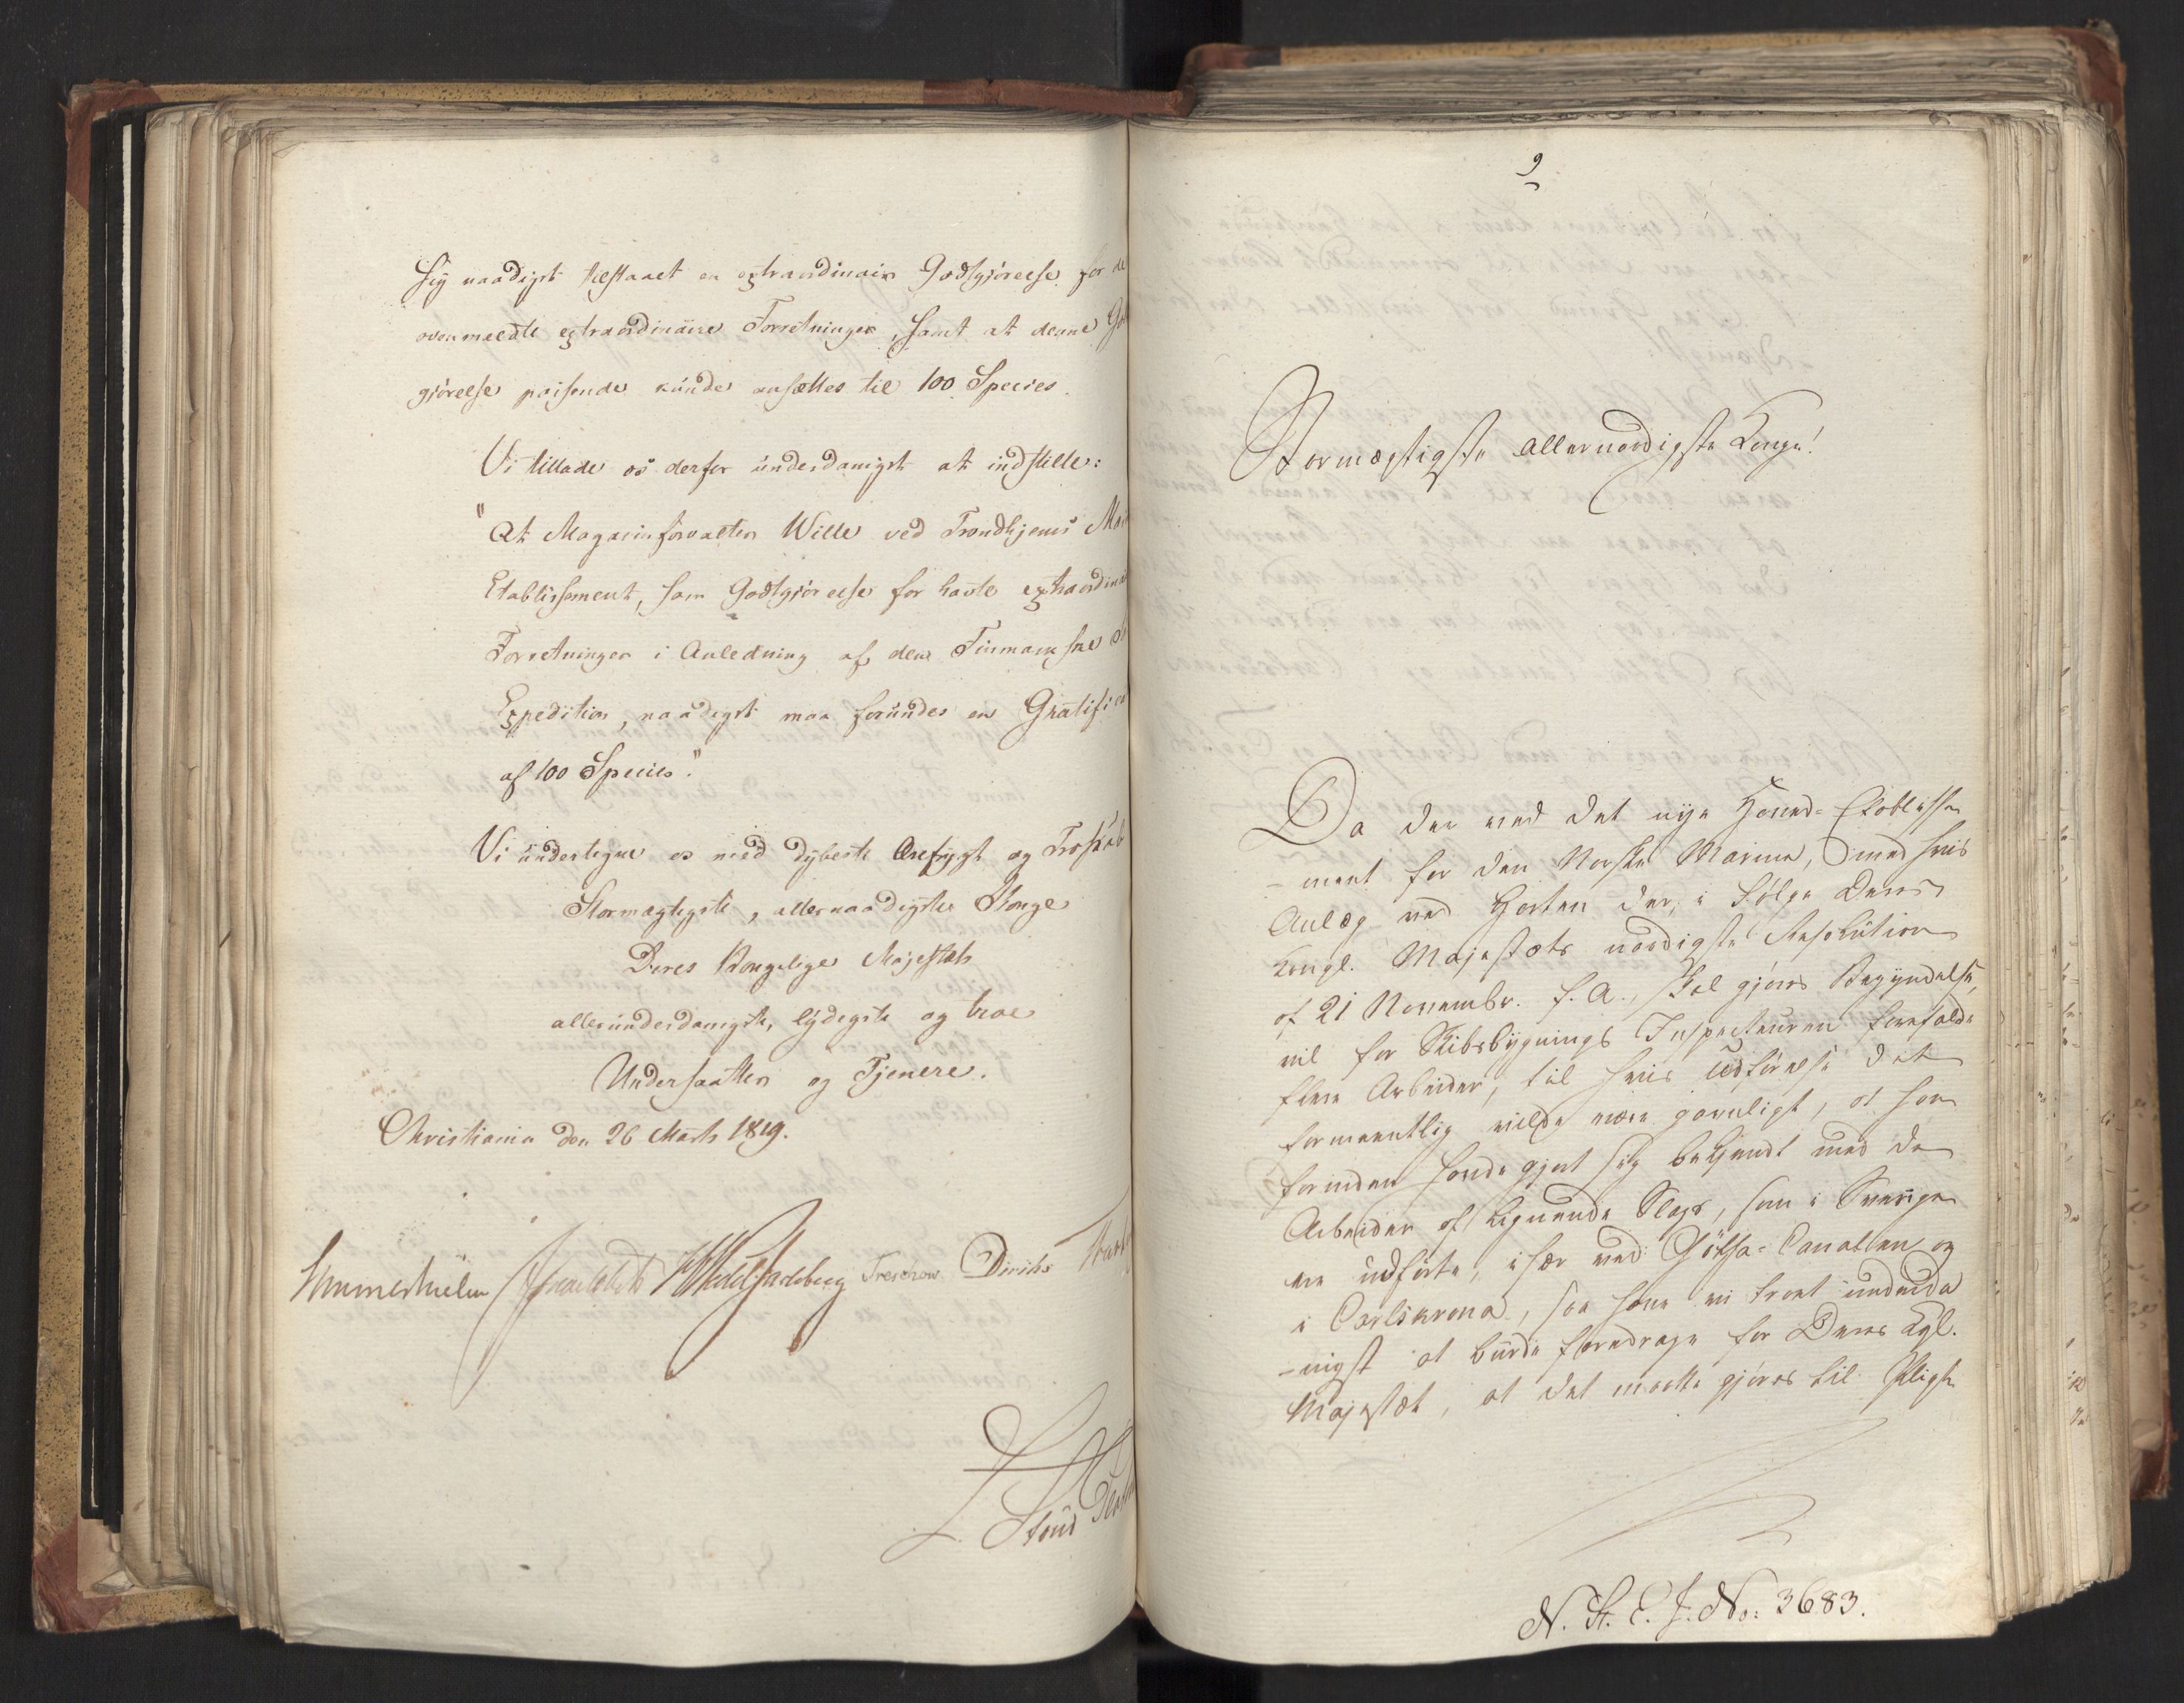 sig naadigst tilstaaet en extraordinair Godtgjörelse for de
ovenmeldte extraordinaire Forretninger, samt at denne God
gjörelse passende kunde ansættes til 100 Species.
Vi tillade os derfor underdanigst at indstille:
"At Magazinforvalter Wille ved Trondhjems Mar
Etablissement, som Godtgjörelse for havte extraordinai
Forretninger i Anledning af den Finmarkske
Expedition, naadigst maa forundes en Gratific
af 100 Species."
Vi undertegne os med dybeste Ærefrygt og Troskab
Stormægtigste, allernaadigste Konge
Deres Kongelige Majestæts
allerunderdanigste, lydigste og troe
Undersaatter og Tjenere.
Christiania den 26 Marts 1819.
Sommerhielm Wedel Jarlsberg Treschow Diriks
9
Stormægtigste Allernaadigste Konge!
Da der ved det nye Hoved-Etablisse
-ment for den Norske Marine, med hvis
Anlæg ved Horten der, i Fölge Deres
Kongl. Majestæts naadigste Resolution
af 21 Novembr. f. A., skal gjöres Begyndelse,
vil for Skibsbygnings Inspecteuren forefalde
flere Arbeider, til hvis Udförelse det
formeentlig vilde være gavnligt, at han
forinden havde gjort sig bekjendt med de
Arbeider af lignende Slags, som i Sverrige
ere udförte, især ved Götha-Canallen og
i Carlskrona, saa have vi troet underda
-nigst at burde foredrage for Deres Kgl.
Majestæt, at det maatte gjöres til Pligt
N. St. E. J. No: 3683.